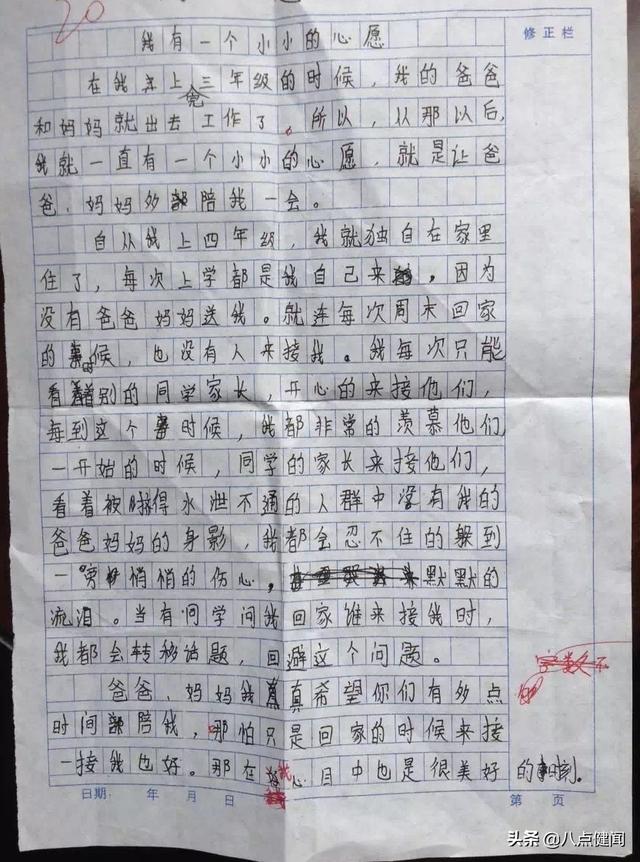 20
修正栏
我有一个小小的心愿
在我上完三年级的时候,我的爸爸
和妈妈就出去工作了。所以,从那以后,
我就一直有一个小小的心愿,就是让爸
爸、妈妈多陪我一会。
自从我上四年级,我就独自在家里
住了,每次上学都是我自己来,因为
没有爸爸妈妈送我。就连每次周末回家
的时候,也没有人来接我。我每次只能
看着别的同学家长,开心的来接他们,
每到这个时候,我都非常的羡慕他们,
一开始的时候,同学的家长来接他们,
看着被挤得水泄不通的人群中没有我的
爸爸妈妈的身影,我都会忍不住的躲到
一旁悄悄的伤心,默默的
流泪。当有同学问我回家谁来接我时,
我都会转移话题,回避这个问题。
字数不
够
爸爸、妈妈我真希望你们有多点
时间陪我,那怕只是回家的时候来接
一接我也好。那在我心目中也是很美好的时刻。
日期: 年 月 日 第 页
头条@八点健闻